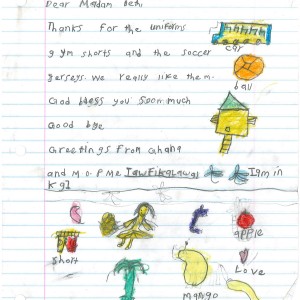 Dear Madam Beth,
Thanks for the uniforms
car
gym shorts and the soccer
jerseys. We really like them.
ball
God bless you soom much
Good bye
Greetings From Ghana
and M.O.P Me I am in
KG1
apple
short
Love
mango